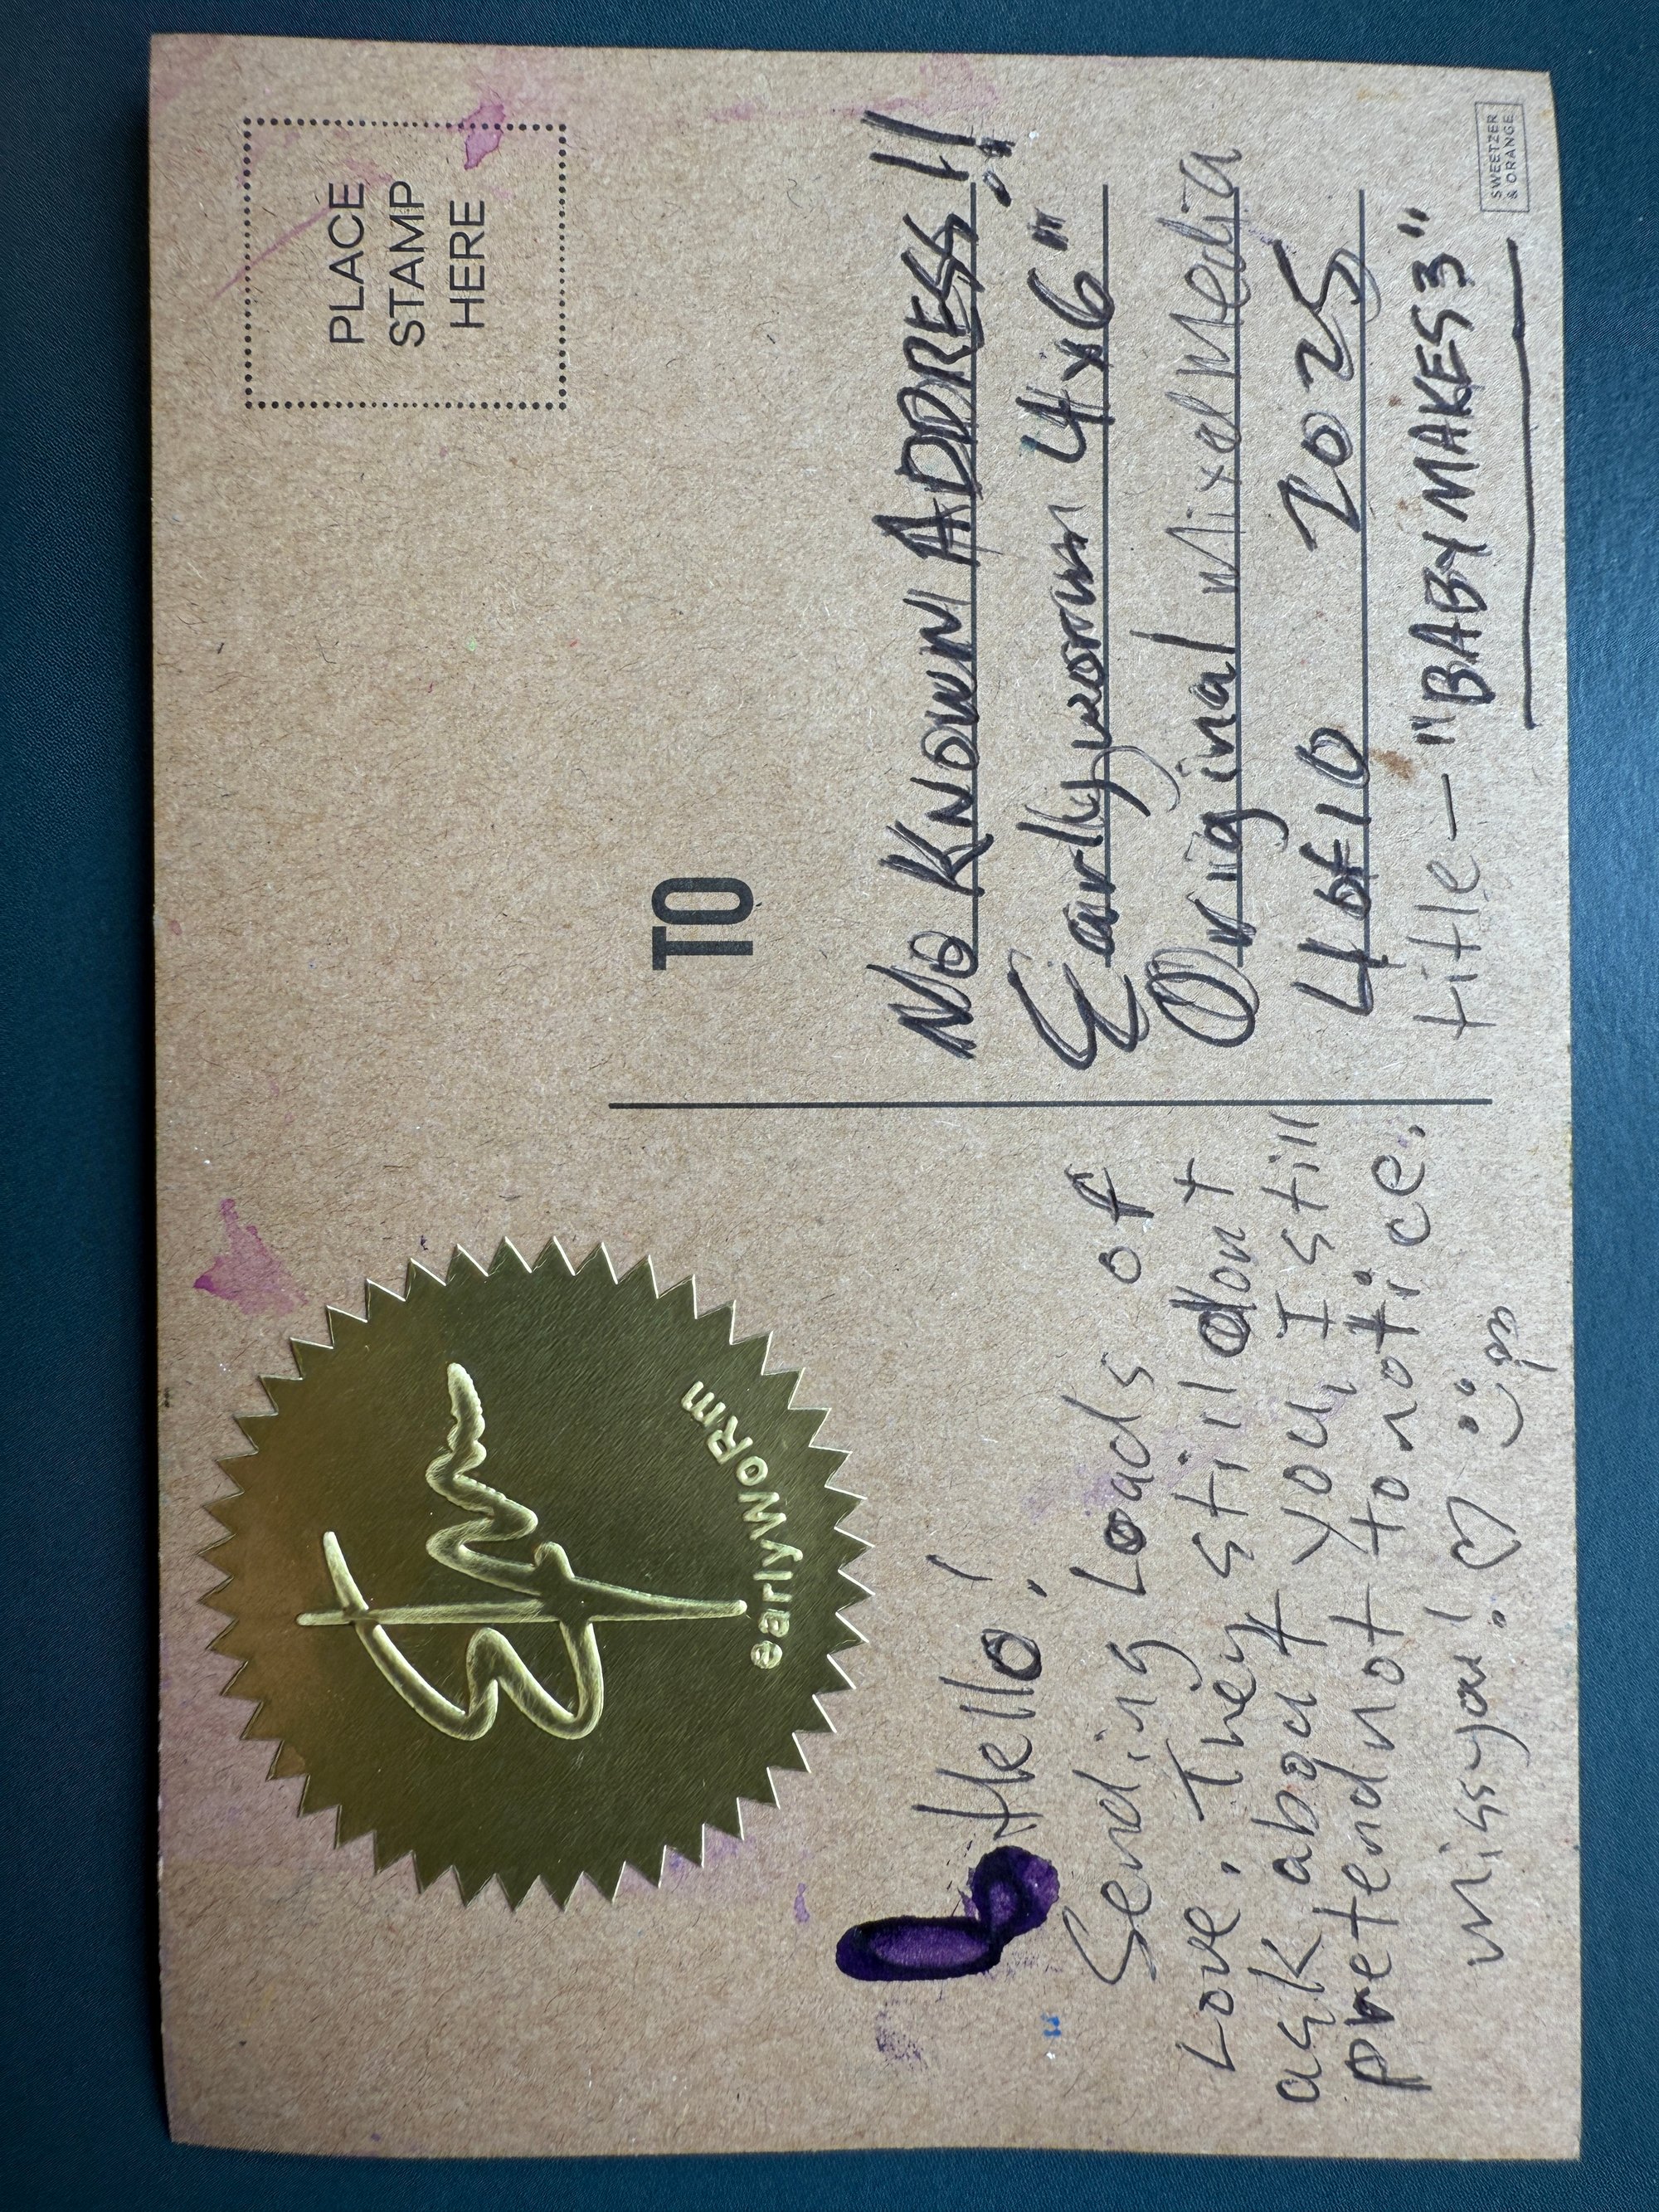 PLACE
STAMP
HERE
earlyWoRm
Hello!
Sending Loads of
Love. They still dont
ask about you, I still
pretend not to notice.
miss you! ♡
TO
No KNOWN ADDRESS!!
Earlyworm 4x6"
Original Mixed Media
4 of 10 2025
title - "BABY MAKES 3"
SWEETZER
& ORANGE